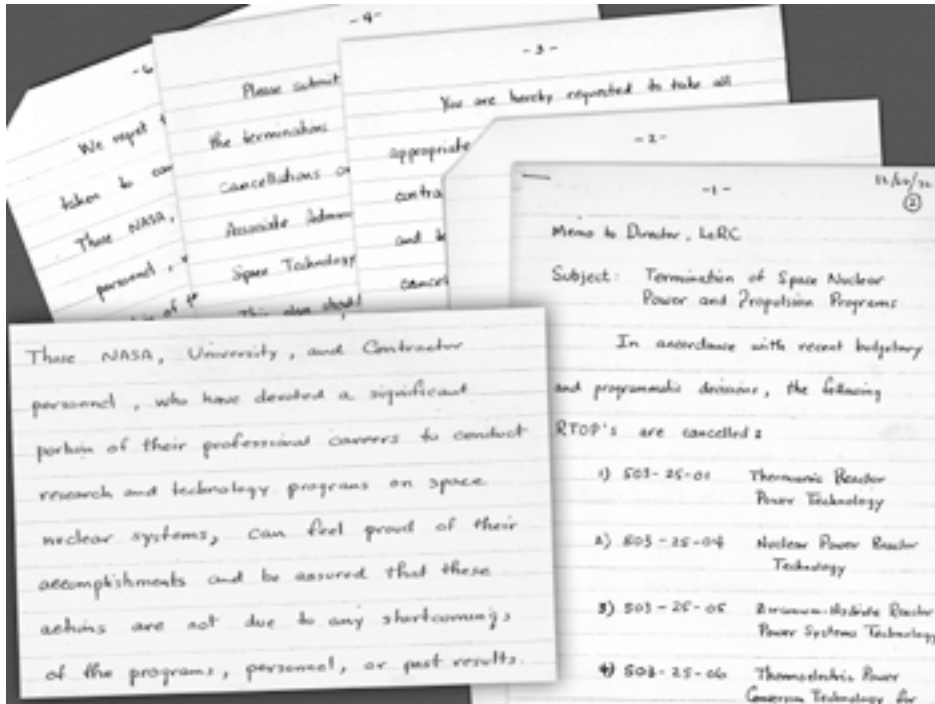 -6-
We regret
taken to
Those NASA,
personnel,
of the
-4-
Please submit
the terminations
cancellations
Associate
Space Technology
This plan should
-3-
You are hereby requested to take all
appropriate
contra
and
cancel
-2-
-1-
2
Memo to Director, LeRC
Subject: Termination of Space Nuclear
Power and Propulsion Programs
In accordance with recent budgetary
and programmatic decisions, the following
RTOP's are cancelled:
1) 503-25-01 Thermionic Reactor
Power Technology
2) 503-25-04 Nuclear Power Reactor
Technology
3) 503-25-05 Zirconium-Hydride Reactor
Power Systems Technology
4) 503-25-06 Thermoelectric Power
Conversion Technology for
Those NASA, University, and Contractor
personnel, who have devoted a significant
portion of their professional careers to conduct
research and technology programs on space
nuclear systems, can feel proud of their
accomplishments and be assured that these
actions are not due to any shortcomings
of the programs, personnel, or past results.